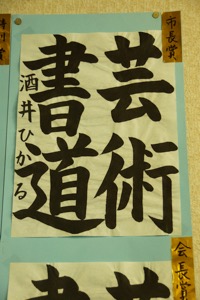 市長賞
芸術
書道
酒井ひかる
会長賞
芸
書